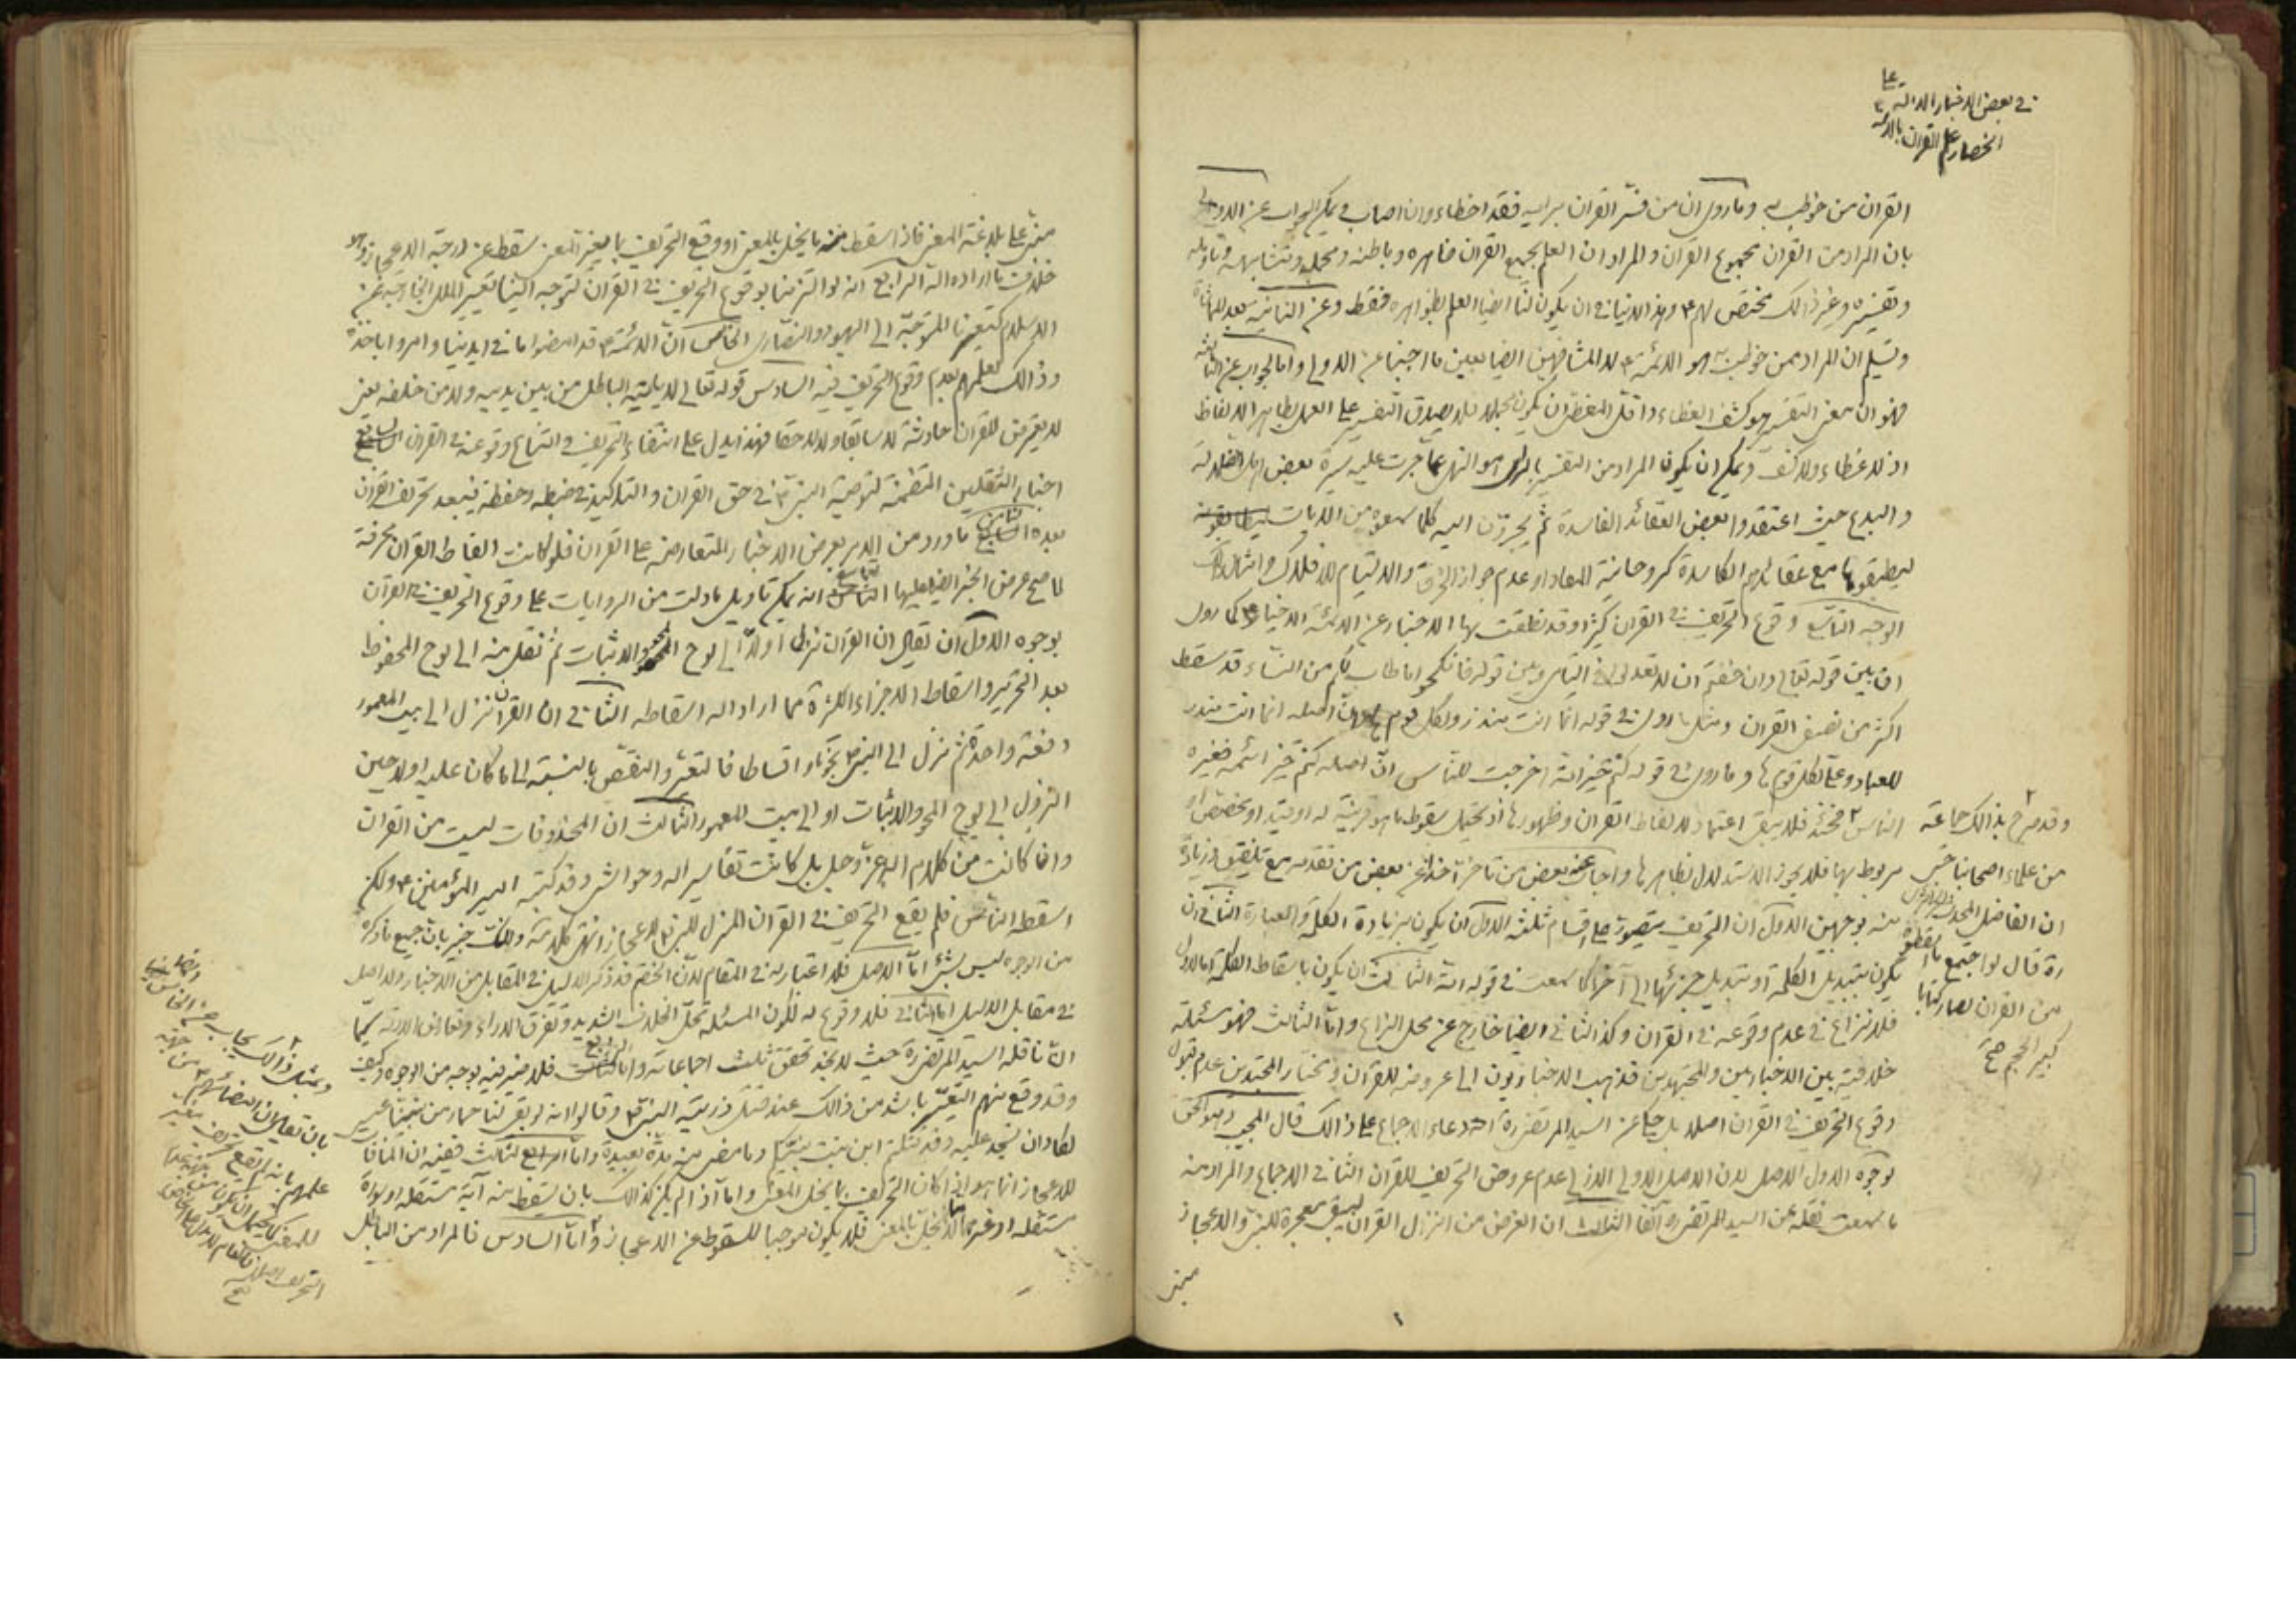 في بعض الاخبار الدالة على
انحصار علم القرآن بالائمة
القرآن من خوطب به وما روى ان من فسّر القرآن برأيه فقد اخطاء وان اصاب ويمكن الجواب عن الاولى
بان المراد من القرآن مجموع القرآن والمراد ان العلم بجميع القرآن ظاهره وباطنه ومحكمه ومتشابهه وتأويله
وتفسيره وغير ذالك مختص لهم ع وهذا لا ينافي ان يكون لنا ايضا العلم بظواهره فقط وعن الثانية بعد
وتسليم ان المراد ممن خوطب به هو الائمة ع لا المشافهين ايضا بعين ما اجبنا عن الاولى واما الجواب عن الثالثة
فهو ان معنى التفسير هو كشف الغطاء واقل المغطى ان يكون مجملا فلا يصدق التفسير على العمل بظاهر الالفاظ
اذ لا غطاء ولا كشف ويمكن ان يكون المراد من التفسير بالراى هو النهى عما جرت عليه سيرة بعض اهل الضلالة
والبدع حيث اعتقدوا بعض العقائد الفاسدة ثم يجرّون اليه كلما سمعوه من الآيات
ليطبقوها مع عقائدهم الكاسدة كروحانية المعاد او عدم جواز الخرق والالتيام للافلاك وامثال ذلك
الوجه التاسع وقوع التحريف في القرآن كثيرا وقد نطقت بها الاخبار عن الائمة الاخيار ع كما روى
ان بين قوله تعالى وان خفتم ان لا تعدلوا في اليتامى وبين قوله فانكحوا ما طاب لكم من النساء قد سقط
اكثر من نصف القرآن ومثل ما روى في قوله انما انت منذر ولكل قوم هاد ان اصله انما انت منذر
للعباد وعلى لكل قوم هاد وما روى في قوله كنتم خير امة اخرجت للناس ان اصله كنتم خير ائمة فغيره
الناس فحينئذ فلا يبقى اعتماد لالفاظ القرآن وظهورها اذ يحتمل سقوط ما هو قرينة له او قيد او مخصص او
مربوط بها فلا يجوز الاستدلال بظاهرها واجاب عنه بعض من تأخر آخذا عن بعض من تقدمه مع تلفيق وزيادة
منه بوجهين الاول ان التحريف يتصور على اقسام ثلثة الاول ان يكون بزيادة الكلمة والعبارة الثاني ان
يكون بتبديل الكلمة او تبديل جزئها الى آخر كما سمعت في قوله ائمة الثالث ان يكون باسقاط الكلمة اما الاول
فلا نزاع في عدم وقوعه في القرآن وكذا الثاني ايضا خارج عن محل النزاع واما الثالث فهو مسئلة
خلافية بين الاخباريين والمجتهدين فذهب الاخباريون الى عروضه للقرآن ومختار المجتهدين عدم قبول
وقوع التحريف في القرآن اصلا بل حكى عن السيد المرتضى ره ادعاء الاجماع على ذالك قال المجيب وهو الحق
لوجوه الاول الاصل لان الاصل الاولى الازلى عدم عروض التحريف للقرآن الثاني الاجماع والمراد منه
ما سمعت نقله عن السيد المرتضى ره آنفا الثالث ان الغرض من انزال القرآن ليبقى معجزة للنبى ص والاعجاز
مبنى
وقد صرح بذالك جماعة
من علماء اصحابنا حتى
ان الفاضل المحدث الجزائرى
ره قال لو اجتمع ما اسقطوه
من القرآن لصار كتابا
كبير الحجم صح
مبنى على بلاغة المعنى فاذا اسقط منه ما يخل بالمعنى او وقع التحريف بما يغير المعنى سقط عن درجة الاعجاز وهو
خلاف ما اراده الله الرابع انه لو التزمنا بوقوع التحريف في القرآن لتوجه الينا تعيير الملل الخارجة عن
الاسلام كتعييرنا المتوجة الى اليهود والنصارى الخامس ان الائمة ع قد امضوا ما في ايدينا وامروا باخذه
وذالك لعلمهم بعدم وقوع التحريف فيه السادس قوله تعالى لا يأتيه الباطل من بين يديه ولا من خلفه يعنى
لا يعرض للقرآن حادثة لا سابقا ولا لاحقا فهذا يدل على انتفاء التحريف وامتناع وقوعه في القرآن السابع
اخبار الثقلين المتضمنة لتوصية النبى ص في حق القرآن والتاكيد في ضبطه وحفظه فيبعد تحريف القرآن
بعده الثامن ما ورد من الامر بعرض الاخبار المتعارضة على القرآن فلو كانت الفاظ القرآن محرفة
لما صح عرض الخبر ايضا عليها التاسع انه يمكن تاويل ما دلت من الروايات على وقوع التحريف في القرآن
بوجوه الاول ان يقال ان القرآن نزل اولا الى لوح المحو والاثبات ثم نقل منه الى لوح المحفوظ
بعد التحرير واسقاط الاجزاء الكثيرة مما اراد الله اسقاطه الثاني ان القرآن نزل الى بيت المعمور
دفعة واحدة ثم نزل الى النبى ص نجوما واقساطا فالتغير والنقص بالنسبة الى ما كان عليه اولا حين
النزول الى لوح المحو والاثبات او الى بيت المعمور الثالث ان المحذوفات ليست من القرآن
وانما كانت من كلام الله عز وجل بل كانت تفاسير له وحواشى وقد كتبه امير المؤمنين ع ولكن
اسقطه الناس فلم يقع التحريف في القرآن المنزل للنبى ص للاعجاز انتهى كلامه وانت خبير بان جميع ما ذكره
من الوجوه ليس بشئ اما الاصل فلا اعتبار به في المقام لان الخصم قد ذكر الدليل في المقابل من الاخبار ولا اصل
في مقابل الدليل اما الثاني فلا وقوع له لكون المسئلة محل الخلاف الشديد وتفرق الآراء وتعارض الادلة كما
ان ما نقله السيد المرتضى ره حيث لا يجد تحقق ثلث اجماعاته واما الرابع فلا ضير فيه بوجه من الوجوه وكيف
وقد وقع منهم التغيير باشد من ذالك عند قتل ذرية النبى ص وقالوا انه لو بقى لنا حمار من نبينا عيسى
لكاد ان نسجد عليه وقد قتلتم ابن بنت نبيكم وما مضى منه مدة بعيدة واما الثالث ففيه ان المنافى
للاعجاز انما هو اذا كان التحريف بما يخل المعنى واما اذا لم يكن كذالك بان يسقط منه آية مستقلة او سورة
مستقلة او غيرهما مما لا يخل بالمعنى فلا يكون موجبا للسقوط عن الاعجاز واما السادس فالمراد من الباطل
وبمثل ذالك يجاب عن الخامس
بان يقال ان امضائهم ع من جهة
علمهم بانه لم يقع تحريف مغير
للمعنى
التحريف اصلا
صح